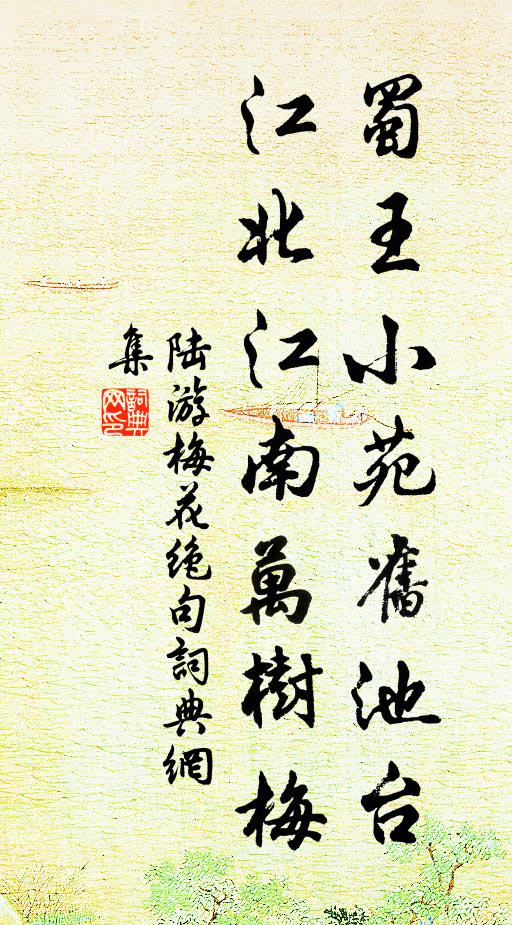 蜀王小苑舊池台
江北江南萬樹梅
陆游梅花绝句詞典網
集
詞典网印